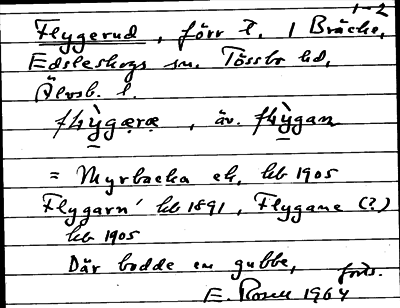 1-2
Flygerud, förr t. 1 Bräcke,
Edsleskogs sn. Tössbo hd,
Älvsb. l.
flỳgæræ, äv. flỳgan
= Myrbacka ek, hb 1905
Flygarn' hb 1891, Flygane (?)
hb 1905
Där bodde en gubbe,
forts.
E. Rosell 1964